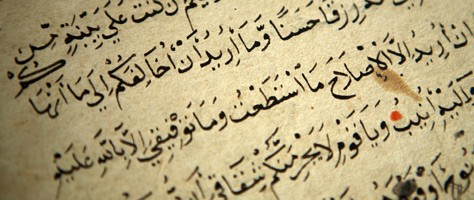 كُنْتُ عَلَى بَيِّنَةٍ مِنْ
رِزْقًا حَسَنًا وَمَا أُرِيدُ أَنْ أُخَالِفَكُمْ إِلَى مَا أَنْهَاكُمْ
أُرِيدُ إِلَّا الْإِصْلَاحَ مَا اسْتَطَعْتُ وَمَا تَوْفِيقِي إِلَّا بِاللَّهِ عَلَيْهِ
وَإِلَيْهِ أُنِيبُ وَيَاقَوْمِ لَا يَجْرِمَنَّكُمْ شِقَاقِي أَنْ